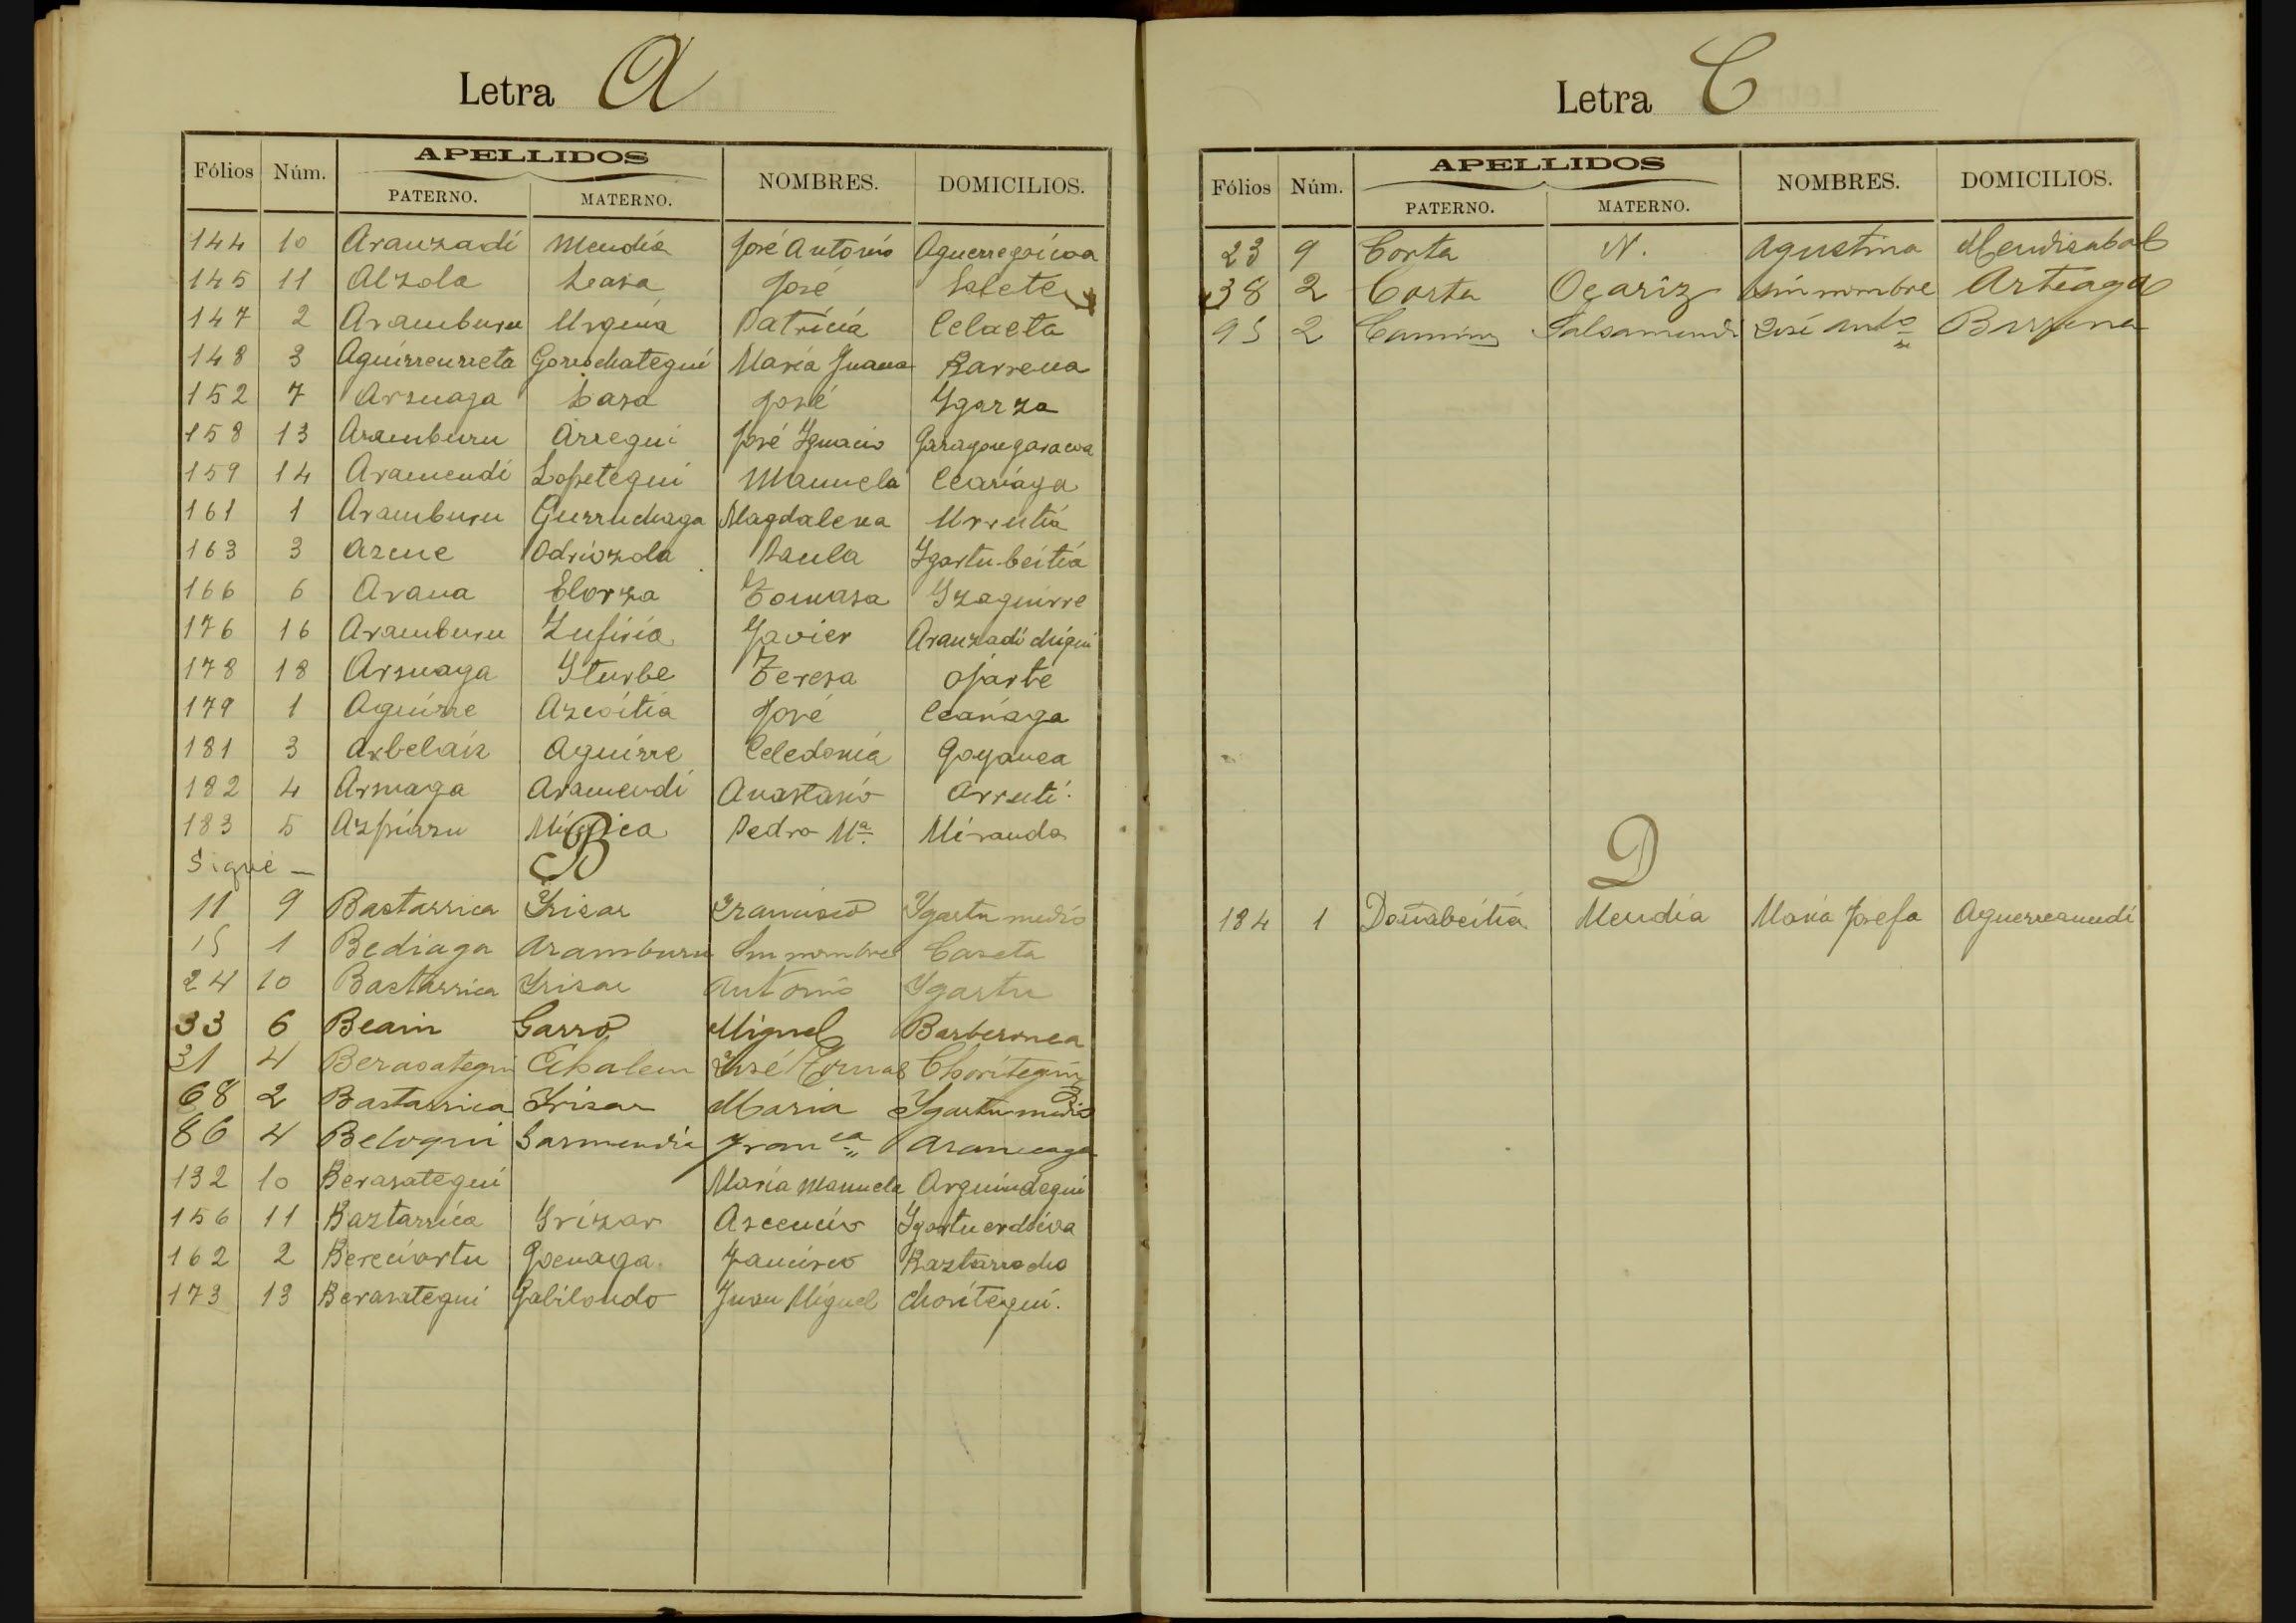 Letra A
Fólios Núm. APELLIDOS NOMBRES. DOMICILIOS.
PATERNO. MATERNO.
144 10 Aranzadi Mendia José Antonio Aguerregoicoa
145 11 Alzola Lasa José Lete
147 2 Aramburu Urquia Patricia Celaeta
148 3 Aguirreurreta Gorrochategui María Juana Barrena
152 7 Arsuaga Lasa José Ygarza
158 13 Aramburu Arregui José Ygnacio Garagougaracoa
159 14 Aramendi Lopetegui Manuela Ceariaga
161 1 Aramburu Gurruchaga Magdalena Urrutia
163 3 Azcue Odriozola Paula Ygartu-beitia
166 6 Arana Elorza Tomasa Yzaguirre
176 16 Aramburu Zufiria Javier Aranzadi chiqui
178 18 Arsuaga Yturbe Teresa Ojarbe
179 1 Aguirre Azcoitia José Ceariaga
181 3 Arbelaiz Aguirre Celedonia Goyanea
182 4 Arsuaga Aramendi Anastasio Arruti
183 5 Azpiazu Múgica Pedro Mª Miranda
Sigue —
B
11 9 Bastarrica Yrisar Francisco Ygartu medio
15 1 Bediaga Aramburu Sin nombre Caseta
24 10 Bastarrica Yrisar Antonio Ygartu
33 6 Beain Garro Miguel Barberonea
31 4 Berasategui José Tomas Choritegui
68 2 Bastarrica Yrisar Maria Ygartu medio
86 4 Beloqui Garmendia Franca
132 10 Berasategui María Manuela Arguindegui
156 11 Baztarrica Yrizar Ascencio Ygartuerdicoa
162 2 Bereciartu Goenaga Francisco Baztarrocho
173 13 Berasategui Gabilondo Juan Miguel Choritegui.
Letra C
Fólios Núm. APELLIDOS NOMBRES. DOMICILIOS.
PATERNO. MATERNO.
23 9 Corta N. Agustina Mendisabal
38 2 Corta Oçariz sin nombre Arteaga
95 2 Camino Salsamendi José Antº Barrena
D
184 1 Doñabeitia Mendia María Josefa Aguerreamendi